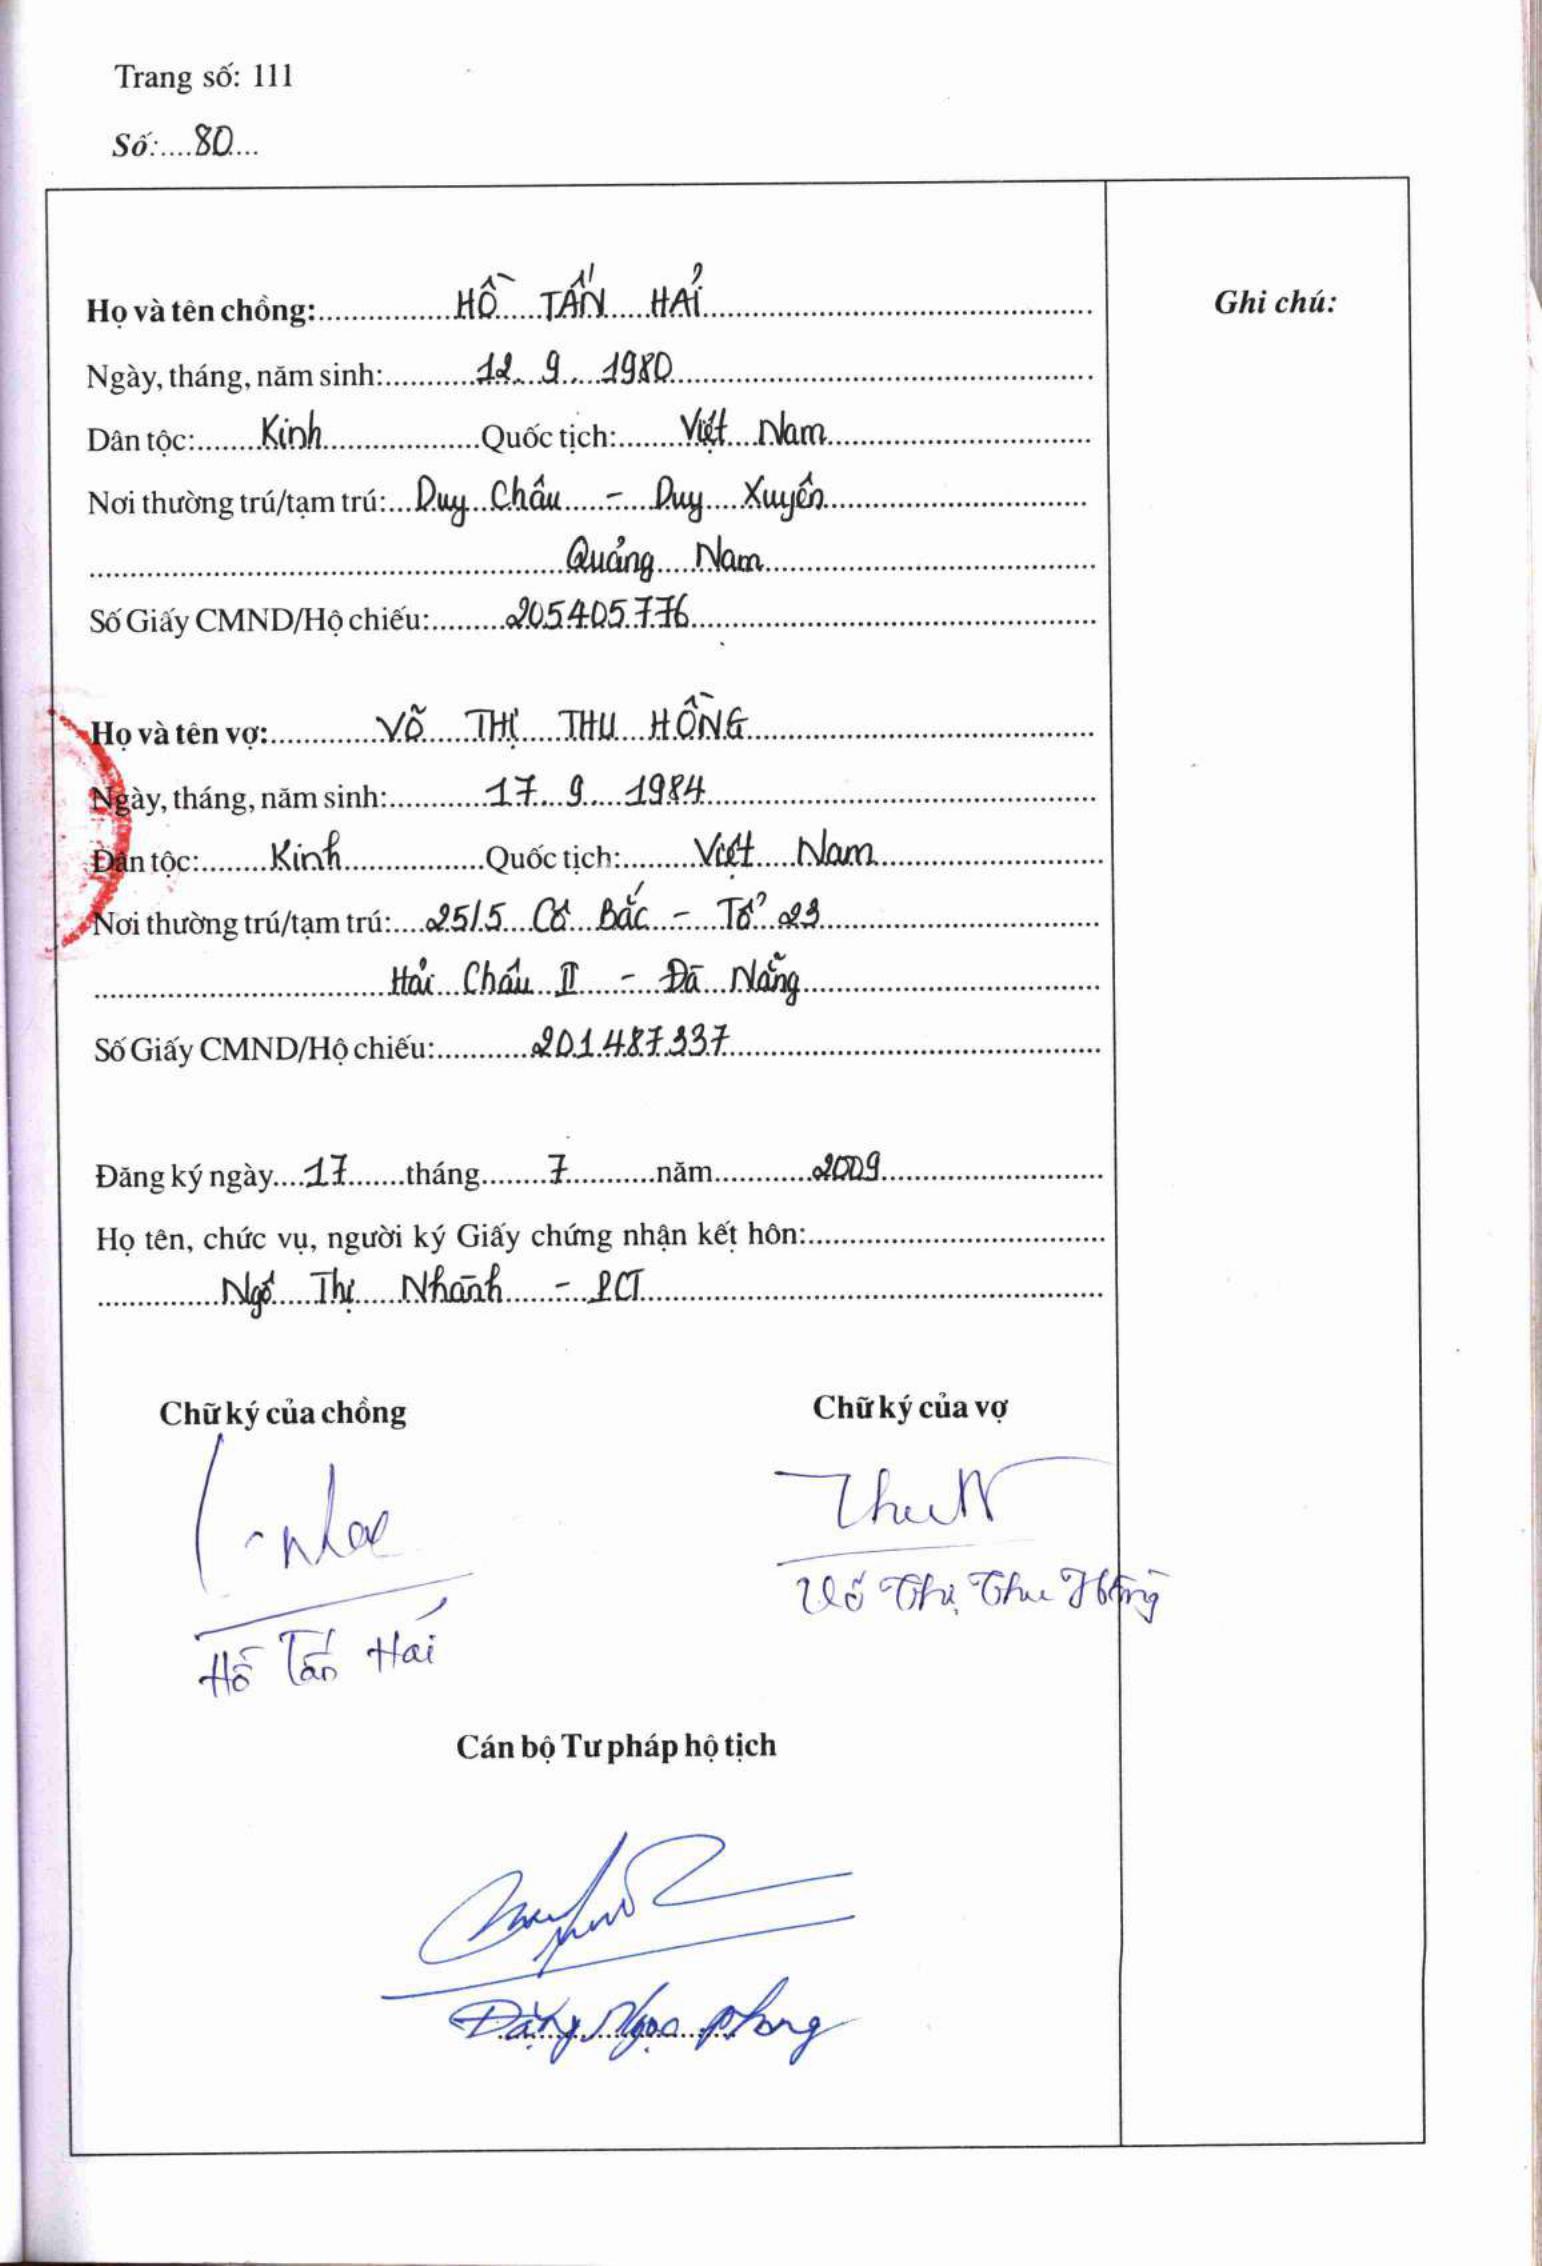 Trang số: 111
Số:....80....
Họ và tên chồng: HỒ TẤN HẢI
Ghi chú:
Ngày, tháng, năm sinh: 12. 9. 1980
Dân tộc: Kinh Quốc tịch: Việt Nam
Nơi thường trú/tạm trú: Duy Châu - Duy Xuyên
Quảng Nam
Số Giấy CMND/Hộ chiếu: 205405776
Họ và tên vợ: VÕ THỊ THU HỒNG
Ngày, tháng, năm sinh: 17. 9. 1984
Dân tộc: Kinh Quốc tịch: Việt Nam
Nơi thường trú/tạm trú: 25/5 Cô Bắc - Tổ 23
Hải Châu II - Đà Nẵng
Số Giấy CMND/Hộ chiếu: 201487337
Đăng ký ngày 17 tháng 7 năm 2009
Họ tên, chức vụ, người ký Giấy chứng nhận kết hôn:
Ngô Thị Nhành - PCT
Chữ ký của chồng Chữ ký của vợ
Võ Thị Thu Hồng
Hồ Tấn Hải
Cán bộ Tư pháp hộ tịch
Đặng Ngọc Phong